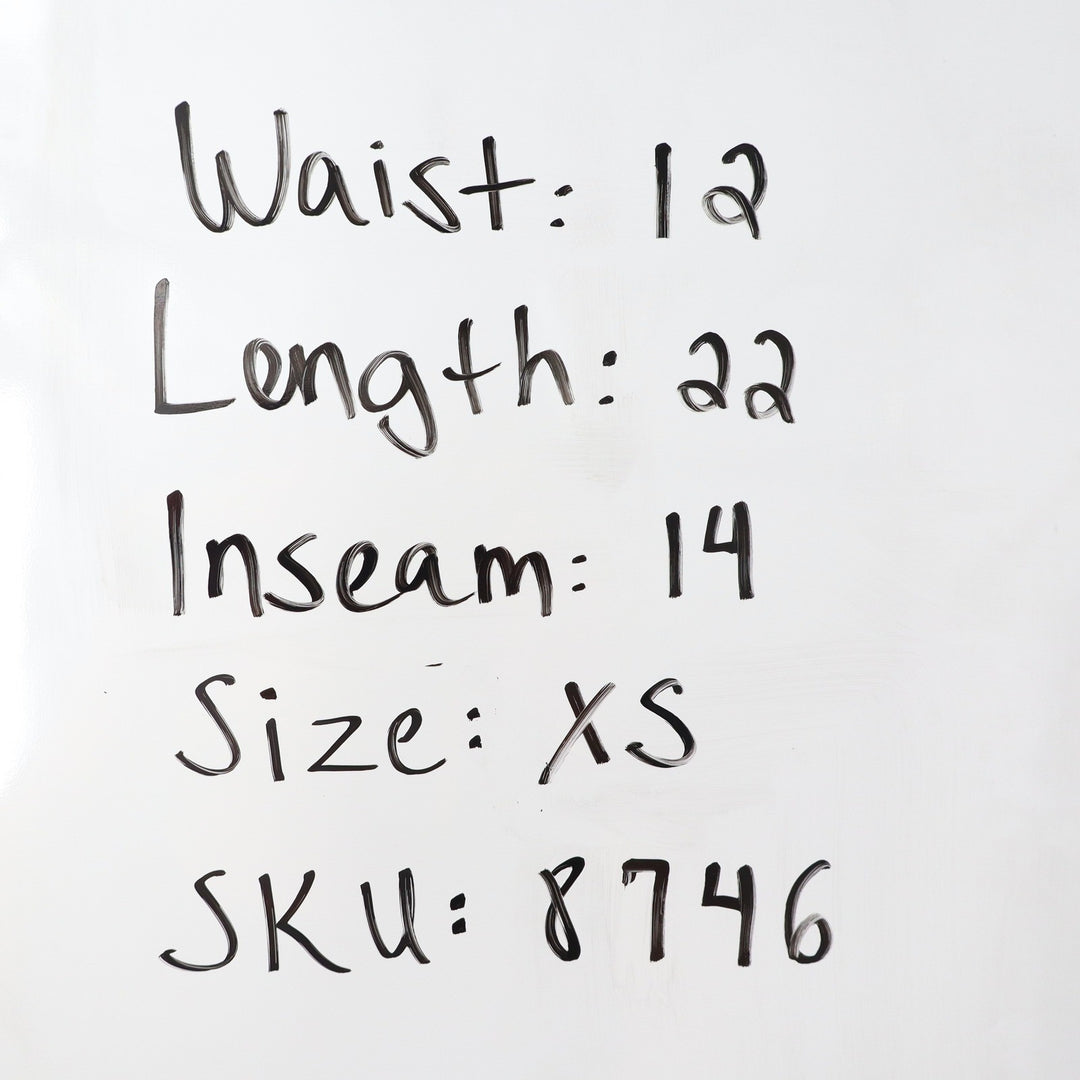 Waist: 12
Length: 22
Inseam: 14
Size: XS
SKU: 8746